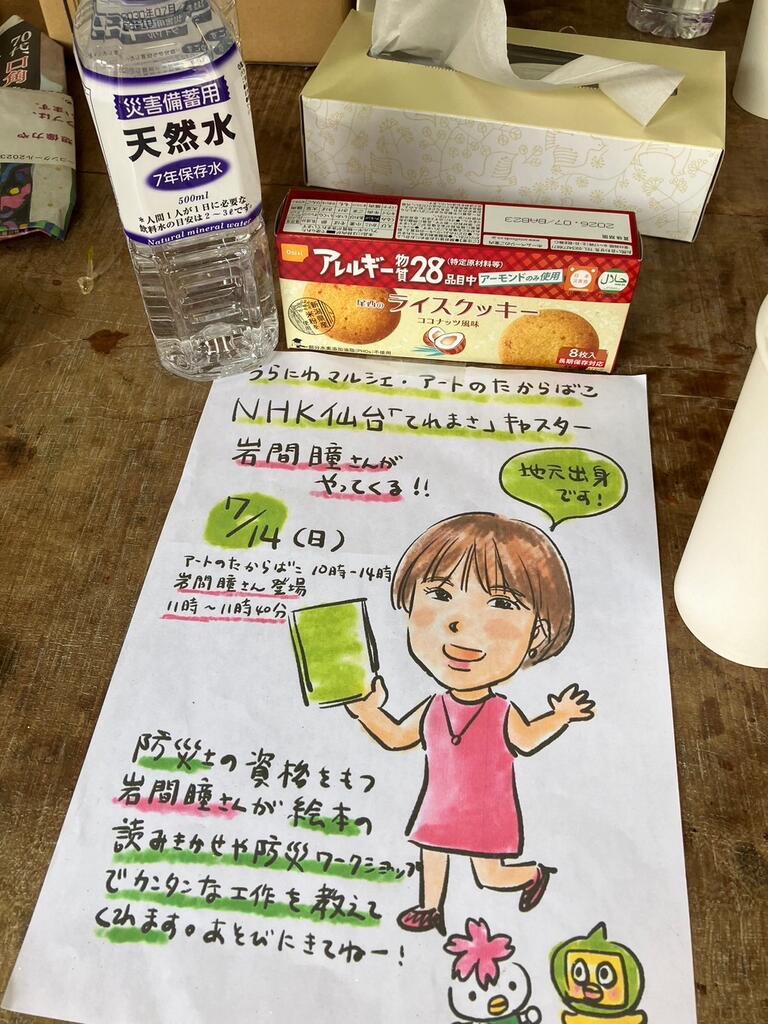 災害備蓄用
天然水
7年保存水
500ml
*人間1人が1日に必要な
飲料水の目安は2~3ℓです。
Natural mineral water
2026.07/BAB23
賞味期限
Onisi
アレルギー物質28品目中
(特定原材料等)
アーモンドのみ使用
尾西の
ライスクッキー
ココナッツ風味
8枚入
長期保存対応
うらにわマルシェ・アートのたからばこ
NHK仙台「てれまさ」キャスター
岩間瞳さんが
やってくる!!
地元出身
です!
7/14(日)
アートのたからばこ 10時-14時
岩間瞳さん登場
11時~11時40分
防災士の資格をもつ
岩間瞳さんが絵本の
読みきかせや防災ワークショップ
でカンタンな工作を教えて
くれます。あそびにきてねー!